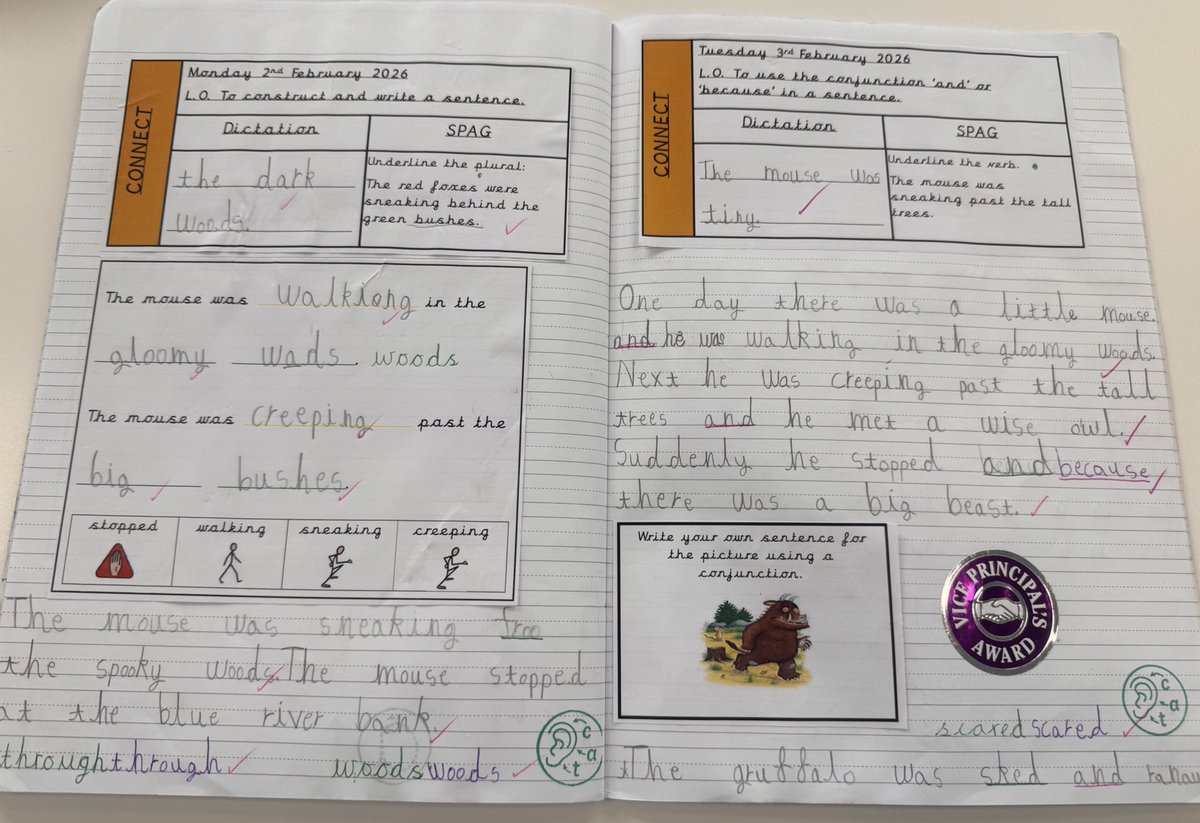 CONNECT
Monday 2nd February 2026
L.O. To construct and write a sentence.
Dictation
SPAG
the dark
woods.
Underline the plural:
The red foxes were
sneaking behind the
green bushes.
The mouse was walklong in the
gloomy wads woods
The mouse was creeping past the
big bushes.
stopped walking sneaking creeping
The mouse was sneaking froo
the spooky woods. The mouse stopped
at the blue river bank.
throughthrough woodswoods
c a t
CONNECT
Tuesday 3rd February 2026
L.O. To use the conjunction 'and' or
'because' in a sentence.
Dictation
SPAG
The mouse was
tiny.
Underline the verb.
The mouse was
sneaking past the tall
trees.
One day there was a little mouse.
and he was walking in the gloomy woods.
Next he was creeping past the tall
trees and he met a wise owl.
Suddenly he stopped and because
there was a big beast.
Write your own sentence for
the picture using a
conjunction.
VICE PRINCIPAL'S
AWARD
c a t
scaredscared
The gruffalo was sked and